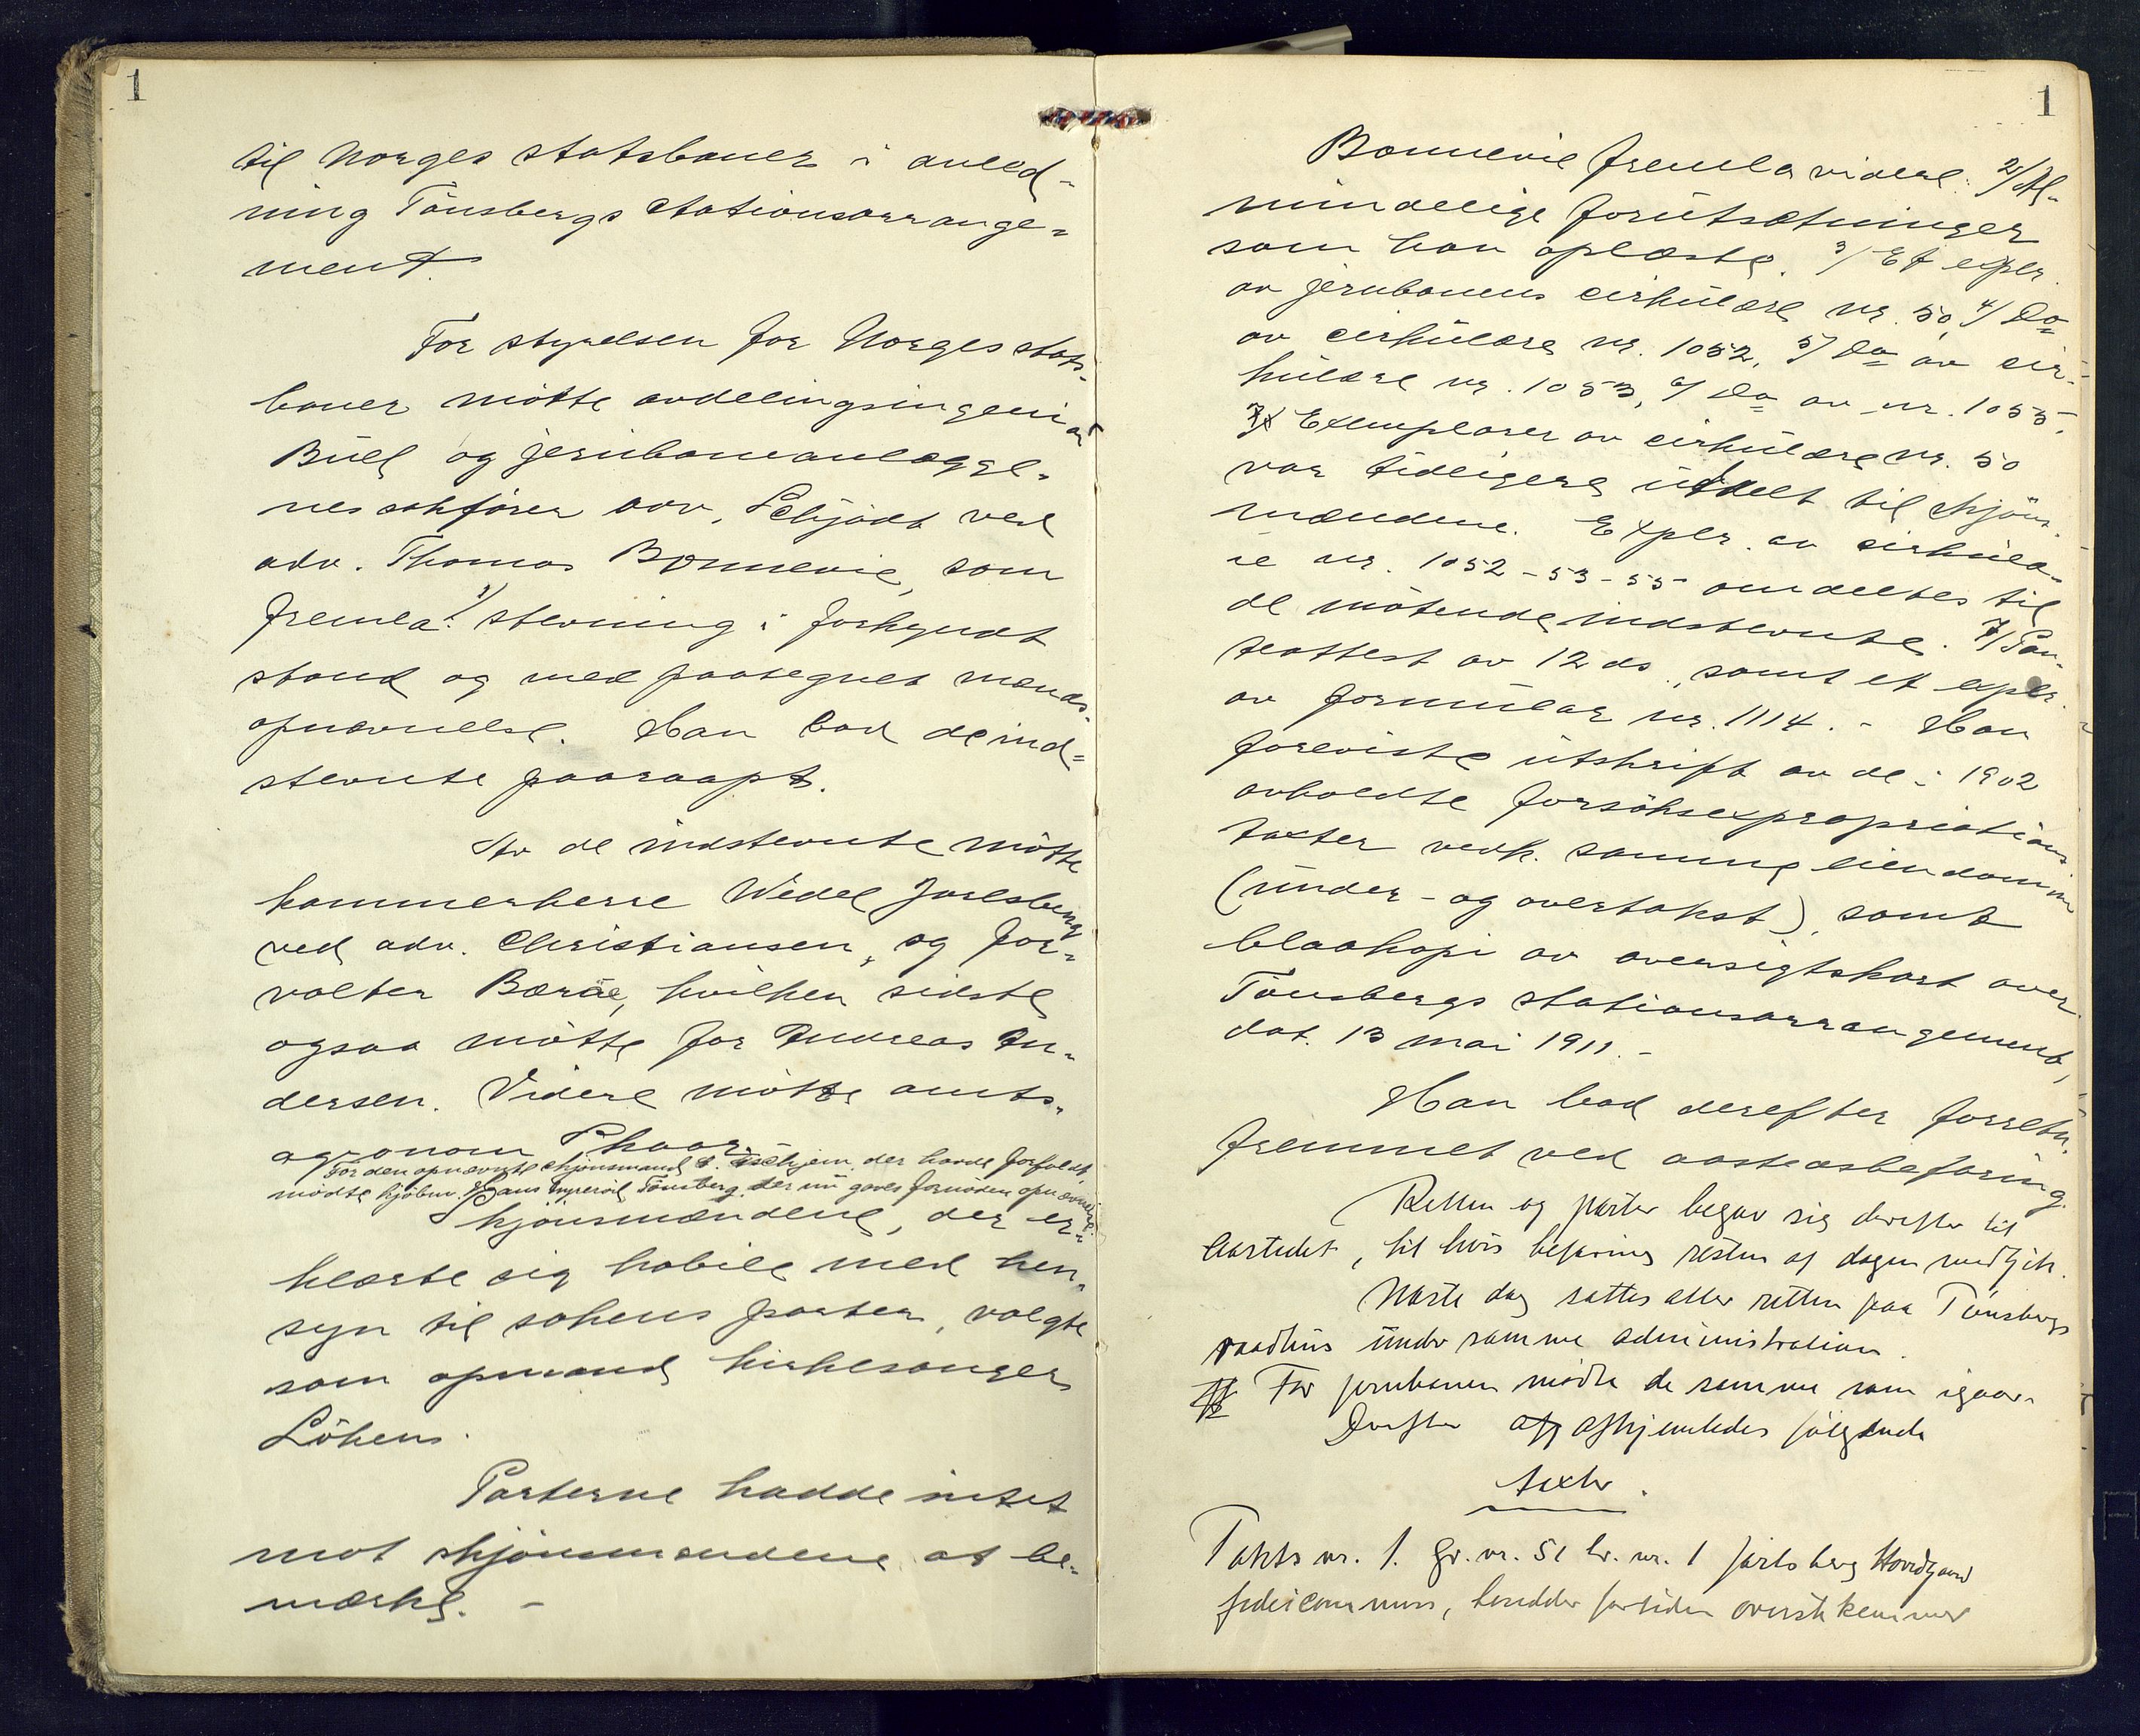 1
til Norges statsbaner i anled-
ning Tönsbergs stationsarrange-
ment.
For styrelsen for Norges stats-
baner mötte avdelingsingeniör
Büll og jernbaneanlægge-
nes sakförer adv. Schjödt ved
adv. Thomas Bonnevie, som
fremla: 1/ stevning i forkyndt
stand og med paategnet mænds-
opnævnelse. Han bad de ind-
stevnte paaraapt.
Av de indstevnte mötte
kammerherre Wedel Jarlsberg
ved adv. Christiansen, og for-
valter Bærøe, hvilken sidste
ogsaa mötte for Andreas An-
dersen. Videre mötte amts-
agronom
For den opnævnte skjönsmand der havde forfald,
mödte kjöbm. Hans Tönsberg, der nu gaves fornöden opnævnelse.
Skjönsmændene, der er-
klærte sig habile med hen-
syn til sakens parter, valgte
som opmand kirkesanger
Löken.
Parterne hadde intet
mot skjönsmændene at be-
mærke. -
1
Bonnevie fremla videre: 2/ Al-
mindelige forutsætninger
som han oplæste. 3/ Et explr.
av jernbanens cirkulære nr. 50, 4/ Do
av cirkulære nr. 1052, 5/ Do av cir-
kulære nr. 1053, 6/ Do av nr. 1055.
Exemplarer av cirkulære nr. 50
var tidligere utdelt til skjöns-
mændene. Explr. av cirkulæ-
re nr. 1052-53-55 omdeltes til
de mötende indstevnte. 7/ Pan-
teattest av 12 ds., samt et explr.
av formular nr. 1114. - Han
foreviste utskrift av de i 1902
avholdte forsöksexpropriations
taxter vedk. samme eiendommer
(under- og overtakst), samt
blaakopi av oversigtskart over
Tönsbergs stationsarrangement,
dat. 13 mai 1911. -
Han bad derefter forretn.
fremmet ved aastedsbefaring.
Retten og parter begav sig derefter til
aastedet, til hvis befaring resten af dagen medgik.
Næste dag sattes atter retten paa Tönsbergs
raadhus under samme administration.
For jernbanen mödte de samme som igaar.
Derefter afhjemledes fölgende
taxter.
Takts nr. 1. Gr. nr. 51 br. nr. 1 Jarlsberg Hovedgaard
fideicommiss, besidder fortiden overstkammer